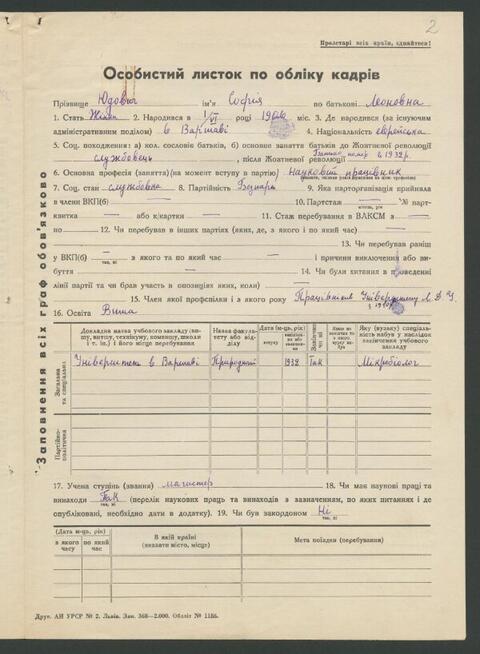 2
Пролетарі всіх країн, єднайтеся!
Особистий листок по обліку кадрів
Прізвище Юдович ім'я Софія по батькові Леоновна
1. Стать Жіноч 2. Народився в 1/VI році міс. 3. Де народився (за існуючим
адміністративним поділом) в Варшаві 4. Національність єврейська
5. Соц. походження: а) кол. сословіє батьків, б) основне заняття батьків до Жовтневої революції
службовець, після Жовтневої революції помер в 1932 р.
6. Основна професія (заняття) (на момент вступу в партію) Науковий працівник
7. Соц. стан службовка 8. Партійність Безпарт 9. Яка парторганізація прийняла
в члени ВКП(б) — 10. Партстаж — № парт-
квитка — або к/картки — 11. Стаж перебування в ВЛКСМ з —
по — 12. Чи перебував в інших партіях (яких, де, з якого і по який час) —
13. Чи перебував раніш
у ВКП(б) — з якого та по який час — і причини виключення або ви-
буття — 14. Чи були хитання в проведенні
лінії партії та чи брав участь в опозиціях (яких, коли) —
15. Член якої профспілки і з якого року Працівників Університету Л.Д.У.
з 1940 р.
16. Освіта Вища
Заповнення всіх граф обов'язково
Докладна назва учбового закладу (вищу, витшу, технікуму, комвишу, школи і т. ін.) і його місце перебування
Назва факультету або відділу
Дата (м-ць, рік)
вступу
Закінчив чи ні
Яку (вузьку) спеціальність набув у наслідок закінчення учбового закладу
Загальна та спеціальна
Університет в Варшаві Природнич 1932 Так Мікробіолог
Партійно-політична
17. Учена ступінь (звання) магистер 18. Чи має наукові праці та
винаходи Так (перелік наукових праць та винаходів з зазначенням, по яких питаннях і де
так, ні
опубліковані, необхідно дати в додатку). 19. Чи був закордоном Ні
так, ні
(Дата м-ць, рік)
з якого часу
по який час
В якій країні
(вказати місто, місце)
Мета поїздки (перебування)
Друк. АН УРСР № 2. Львів. Зам. 368—2.000. Обліт № 1186.